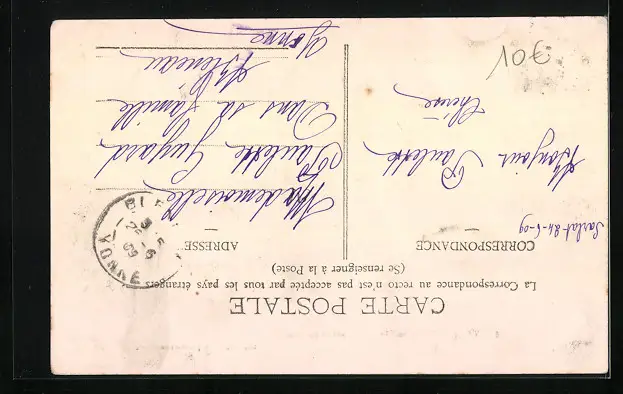 CARTE POSTALE
La Correspondance au recto n'est pas acceptée par tous les pays étrangers
(Se renseigner à la Poste)
CORRESPONDANCE
Sarlat 24-6-09
Bonjour Paulette
Chérie
ADRESSE
Mademoiselle
Paulette Guyard
Dans sa famille
Bléneau
Yonne
BLÉ
5
25-6
09
YONNE
705